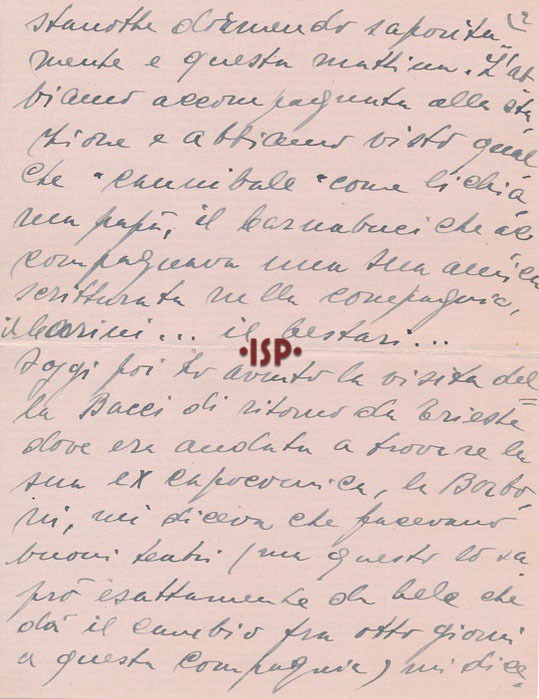 12
stanotte dormendo saporita=
mente e questa mattina. L'ab
biamo accompagnata alla sta
zione e abbiamo visto qual
che "cannibale" come li chia
ma papà, il Carnabuci che ac
compagnava una sua amica
scritturata nella compagnia,
il Carini... il Bestari...
·ISP·
Oggi poi ho avuto la visita del=
la Bacci di ritorno da Trieste
dove era andata a trovare la
sua ex capocomica, la Borbo
ni, mi diceva che facevano
buoni teatri (ma questo lo sa
prò esattamente da che
dà il cambio fra otto giorni
a questa compagnia) mi dice=